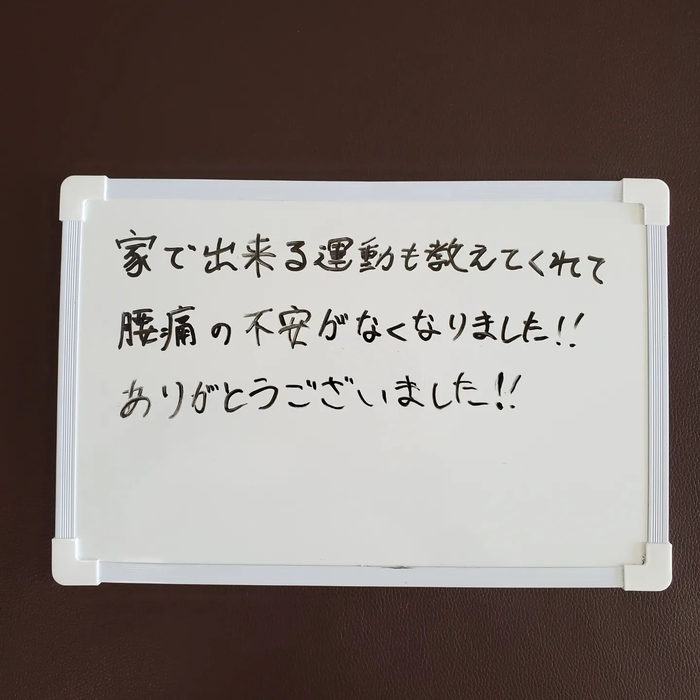 家で出来る運動も教えてくれて
腰痛の不安がなくなりました!!
ありがとうございました!!